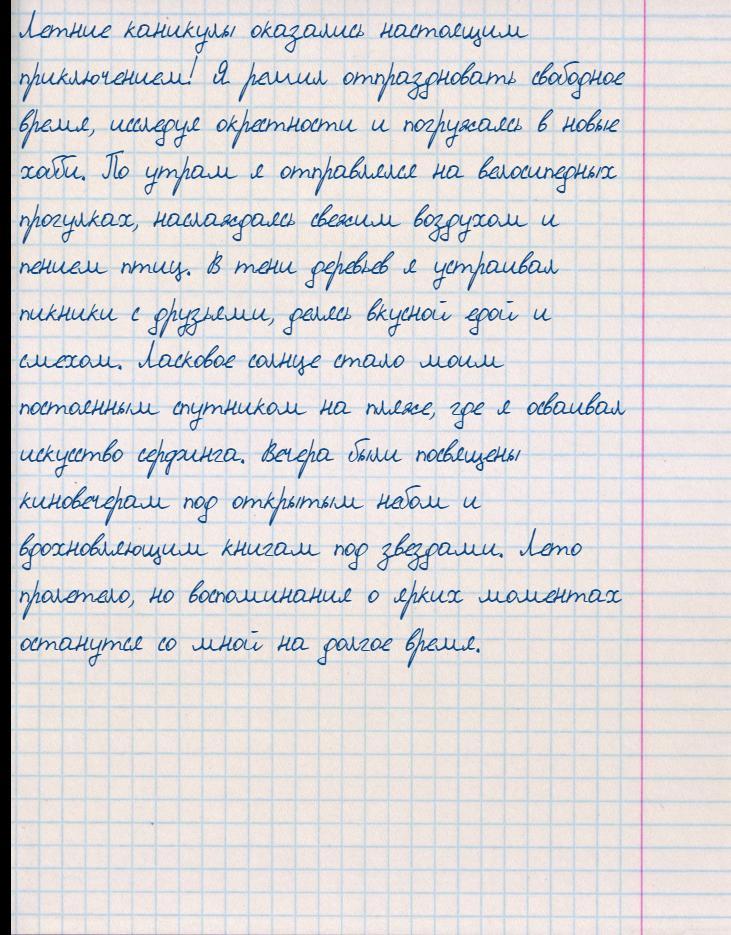 Летние каникулы оказались настоящим
приключением! Я решил отпраздновать свободное
время, исследуя окрестности и погружаясь в новые
хобби. По утрам я отправлялся на велосипедных
прогулках, наслаждаясь свежим воздухом и
пением птиц. В тени деревьев я устраивал
пикники с друзьями, делясь вкусной едой и
смехом. Ласковое солнце стало моим
постоянным спутником на пляже, где я осваивал
искусство серфинга. Вечера были посвящены
киновечерам под открытым небом и
вдохновляющим книгам под звездами. Лето
пролетело, но воспоминания о ярких моментах
останутся со мной на долгое время.